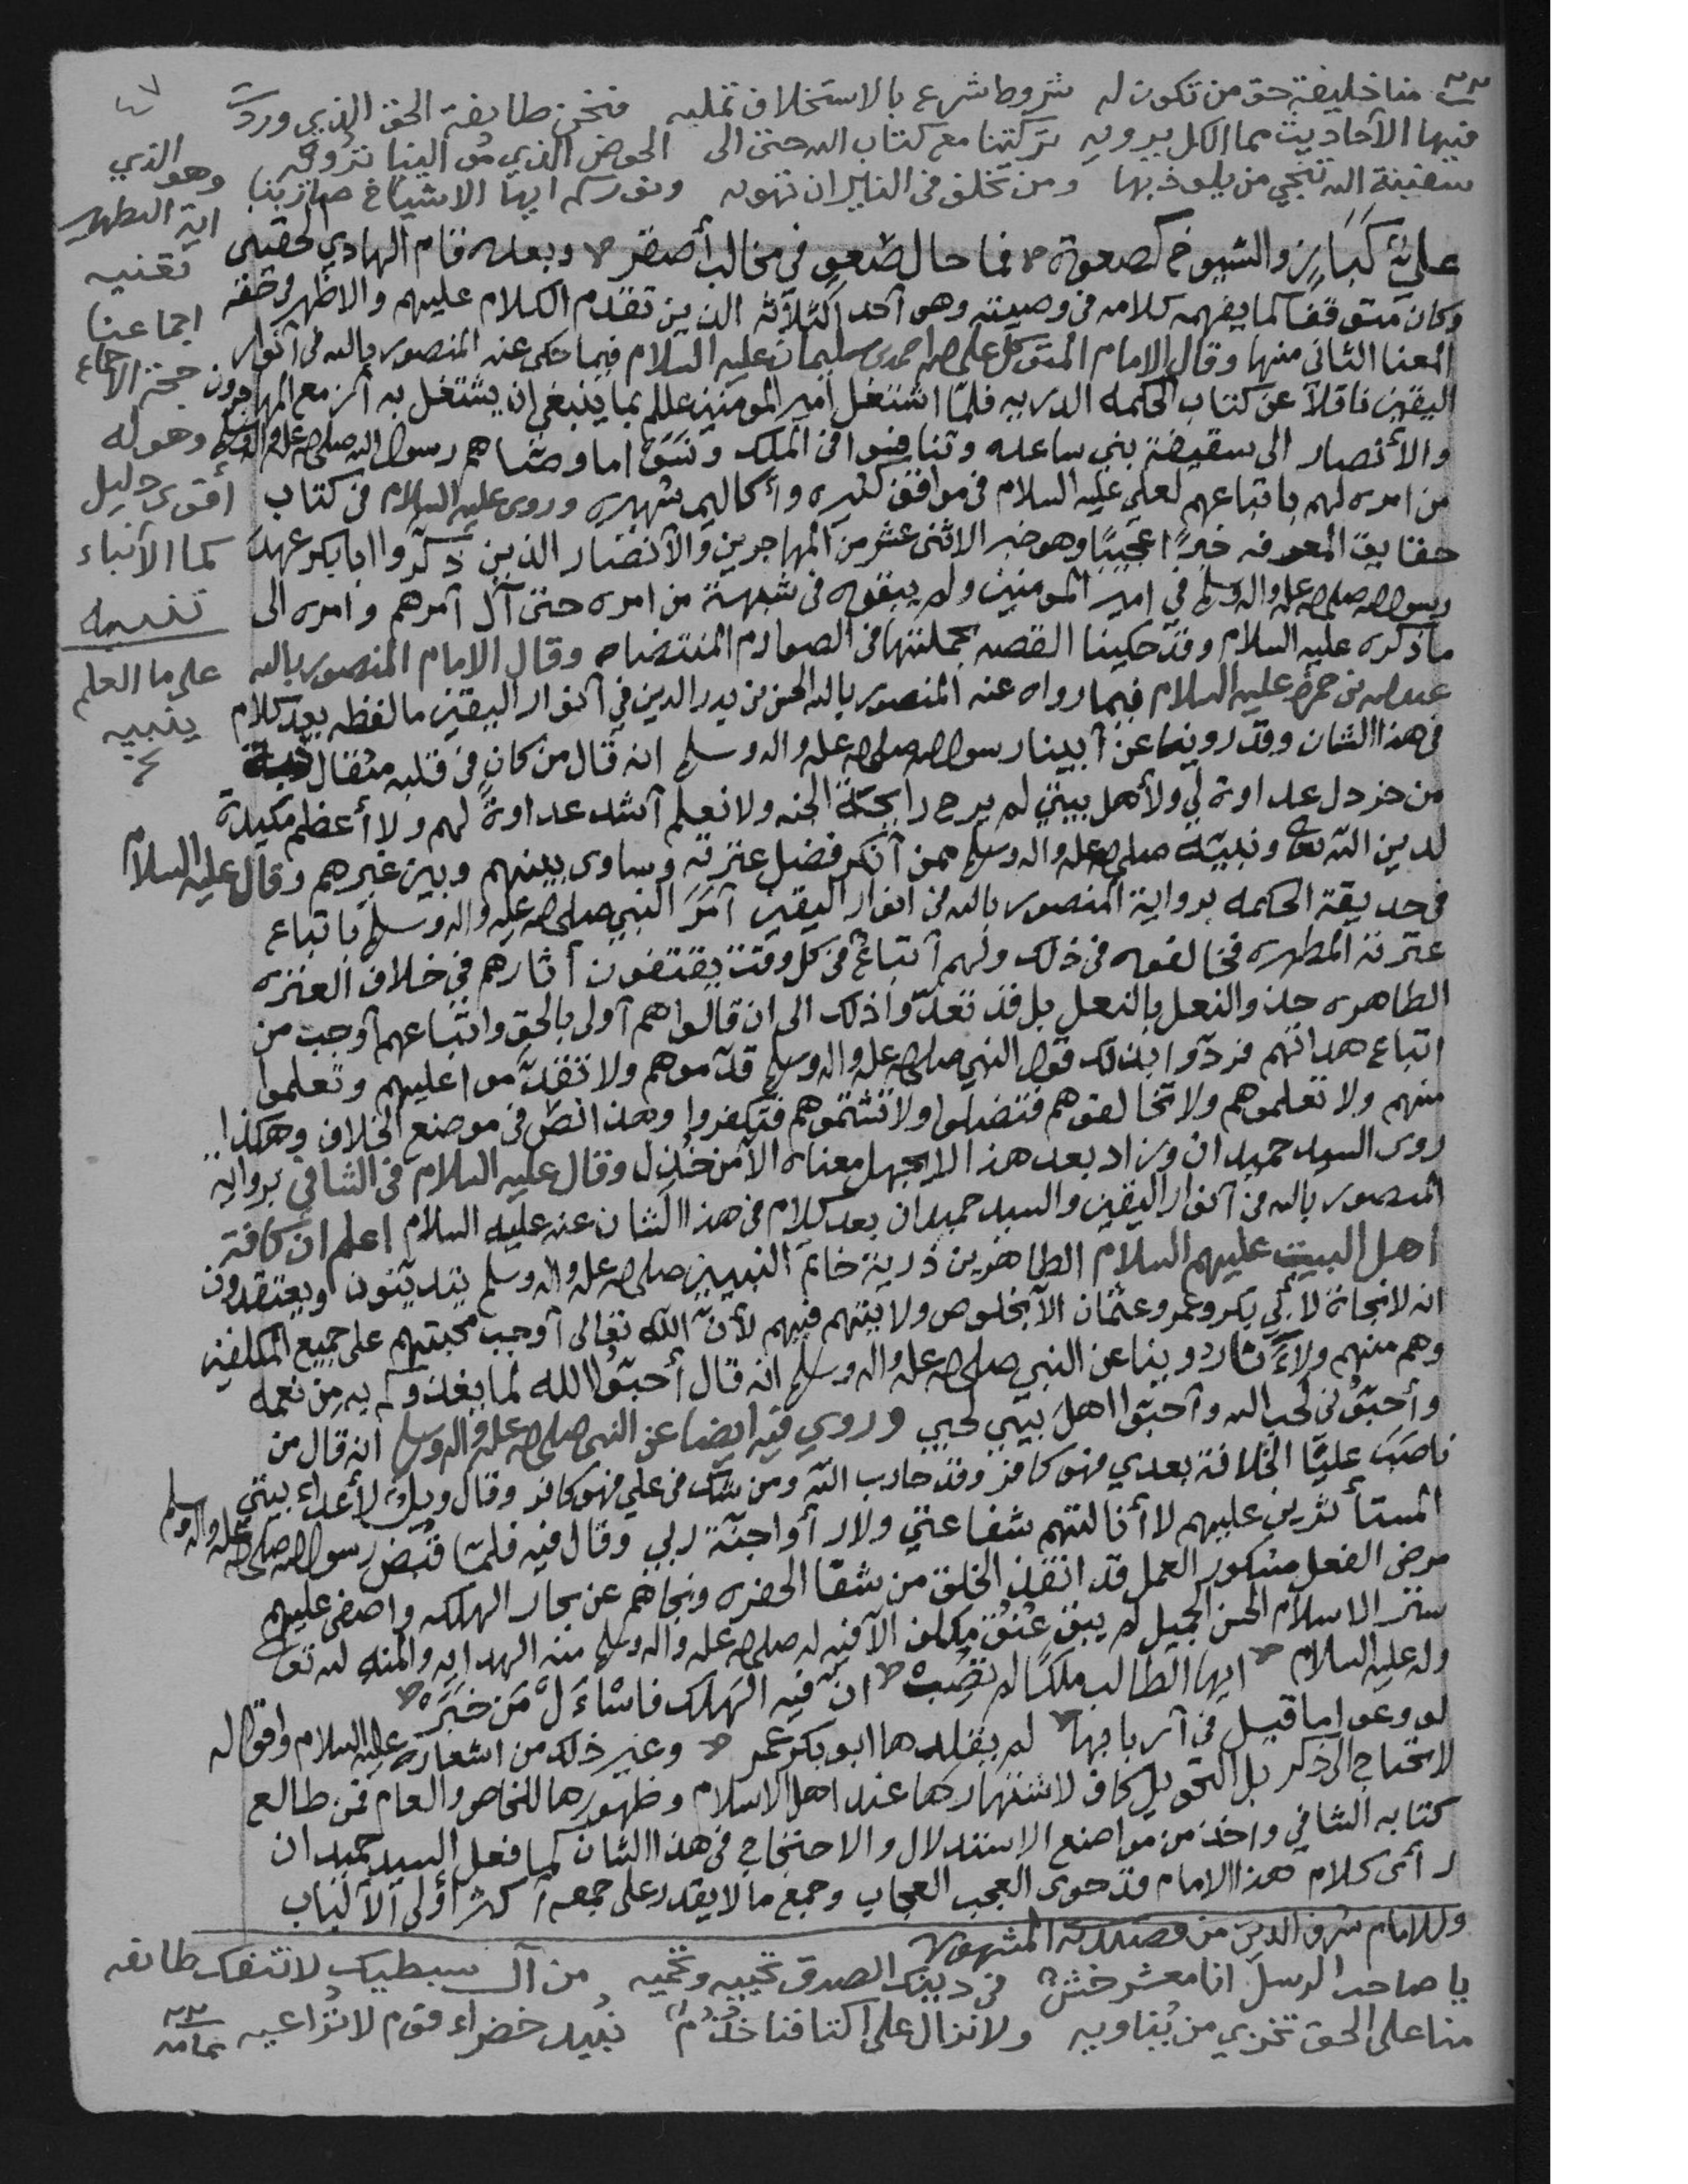 منا خليفة حق من تكون له شروط شرع بالاستخلاف تمليه فنحن طايفة الحق الذي وردت
فيها الأحاديث مما الكل يرويه تركتنا مع كتاب الله حتى الى الحوض الذي من الينا نرويه
سفينة الله تنجي من يلوذ بها ومن تخلف في النار ان تهويه
وهو الذي
اية التطهير
تغنيه
اجماعنا
حجة الاجماع
وهو له
أقوى دليل
كما الأنباء
تنبيه
على ما العلم
ينبيه
علي كباز والشيوخ كصعوة فما حال صعو في مخالب أصقر وبعده قام الهادي الحقيني
وكان متوقفا كما يفهمه كلامه في وصيته وهو أحد الثلاثة الذين تقدم الكلام عليهم والاظهر وقفه
المعنا الثاني منها وقال الامام المتوكل على الله احمد بن سليمان عليه السلام فيما حكى عنه المنصور بالله في أنوار
اليقين ناقلا عن كتاب الحكمة الدرية فلما اشتغل أمير المومنين علي بما ينبغي ان يشتغل به أنر مع المهاجرون
والأنصار الى سقيفة بني ساعده وتنافسوا في الملك ونسوا ما وصاهم رسول الله صلى الله عليه واله وسلم
من امره لهم باتباعهم لعلي عليه السلام في مواقف كثيره وأكاليم شهيره وروى عليه السلام في كتاب
حقايق المعرفه خبرا عجيبا وهو خبر الاثنى عشر من المهاجرين والأنصار الذين ذكروا ابا بكر عهد
رسول الله صلى الله عليه واله وسلم في امير المومنين ولم يبقوه في شبهة من امره حتى آل أمرهم وامره الى
ما ذكره عليه السلام وقد حكينا القصه بجملتها في الصوارم المنتضاه وقال الامام المنصور بالله
عبدالله بن حمزه عليه السلام فيما رواه عنه المنصور بالله الحسن بن بدر الدين في أنوار اليقين ما لفظه بعد كلام
في هذا الشان وقد روينا عن أبينا رسول الله صلى الله عليه واله وسلم انه قال من كان في قلبه مثقال حبة
من خردل عداوة لي ولأهل بيتي لم يرح رايحة الجنه ولا نعلم أشد عداوة لهم ولا أعظم مكيدة
لدين الله تعالى ونبيه صلى الله عليه واله وسلم ممن أنكر فضل عترته وساوى بينهم وبين غيرهم وقال عليه السلام
في حديقة الحكمه برواية المنصور بالله في انوار اليقين أمر النبي صلى الله عليه واله وسلم باتباع
عترته المطهره فخالفوه في ذلك ولهم أتباع في كل وقت يقتفون أثارهم في خلاف العتره
الطاهره حذو النعل بالنعل بل قد تعدوا ذلك الى ان قالوا هم أولى بالحق واتباعهم أوجب من
اتباع هداتهم فردوا بذلك قول النبي صلى الله عليه واله وسلم قدموهم ولا تقدموا عليهم وتعلموا
منهم ولا تعلموهم ولا تخالفوهم فتضلوا ولا تشتموهم فتكفروا وهذا نص في موضع الخلاف وهكذا
روى السيد حميدان وزاد بعد هذا لا يجهل معناه الا من خذل وقال عليه السلام في الشافي برواية
المنصور بالله في أنوار اليقين والسيد حميدان بعد كلام في هذا الشان عنه عليه السلام اعلم ان كافة
اهل البيت عليهم السلام الطاهرين ذرية خاتم النبيين صلى الله عليه واله وسلم يدينون ويعتقدون
انه لا نجاة لأبي بكر وعمر وعثمان الا بخلوص ولايتهم فيهم لأن الله تعالى أوجب محبتهم على جميع المكلفين
وهم منهم ولأنا روينا عن النبي صلى الله عليه واله وسلم انه قال أحبوا الله لما يغذوكم به من نعمه
وأحبوني لحب الله وأحبوا اهل بيتي لحبي وروي فيه ايضا عن النبي صلى الله عليه واله وسلم انه قال من
ناصب عليا الخلافة بعدي فهو كافر وقد حارب الله ومن شك في علي فهو كافر وقال ويل لأعداء بيتي
المستأثرين عليهم لا أنالتهم شفاعتي ولا رأوا جنة ربي وقال فيه فلما قبض رسول الله صلى الله عليه واله وسلم
مرضي الفعل مشكور العمل قد انقذ الخلق من شفا الحفره ونجاهم عن بحار الهلكه واضفى عليهم
ستر الاسلام الحسن الجميل لم يبق عنق مكلف الا فيه له صلى الله عليه واله وسلم منه الهدايه والمنه لله تعالى
وله عليه السلام ايها الطالب ملكا لم تصب ان فيه الهلك فاسأل من خبره
لو وعوا ما قيل في أربابها لم يقلدها ابو بكر عمر وغير ذلك من اشعاره عليه السلام واقواله
لا تحتاج الى ذكر بل التحويل كاف لاشتهارها عند اهل الاسلام وظهورها للخاص والعام فمن طالع
كتابه الشافي واخذ من مواضع الاستدلال والاحتجاج في هذا الشان كما فعل السيد حميدان
رأى كلام هذا الامام قد حوى العجب العجاب وجمع ما لا يقدر على جمعه أكثر أولى الألباب
وللامام شرف الدين من قصيدته المشهوره
يا صاحب الرسل انا معشر خشن في دينك الصدق نحييه ونحميه من آل سبطيك لا تنفك طائفه
منا على الحق تخزي من يناويه ولا نزال على اكتافنا خذم نبيد خضراء قوم لا تراعيه تمامه